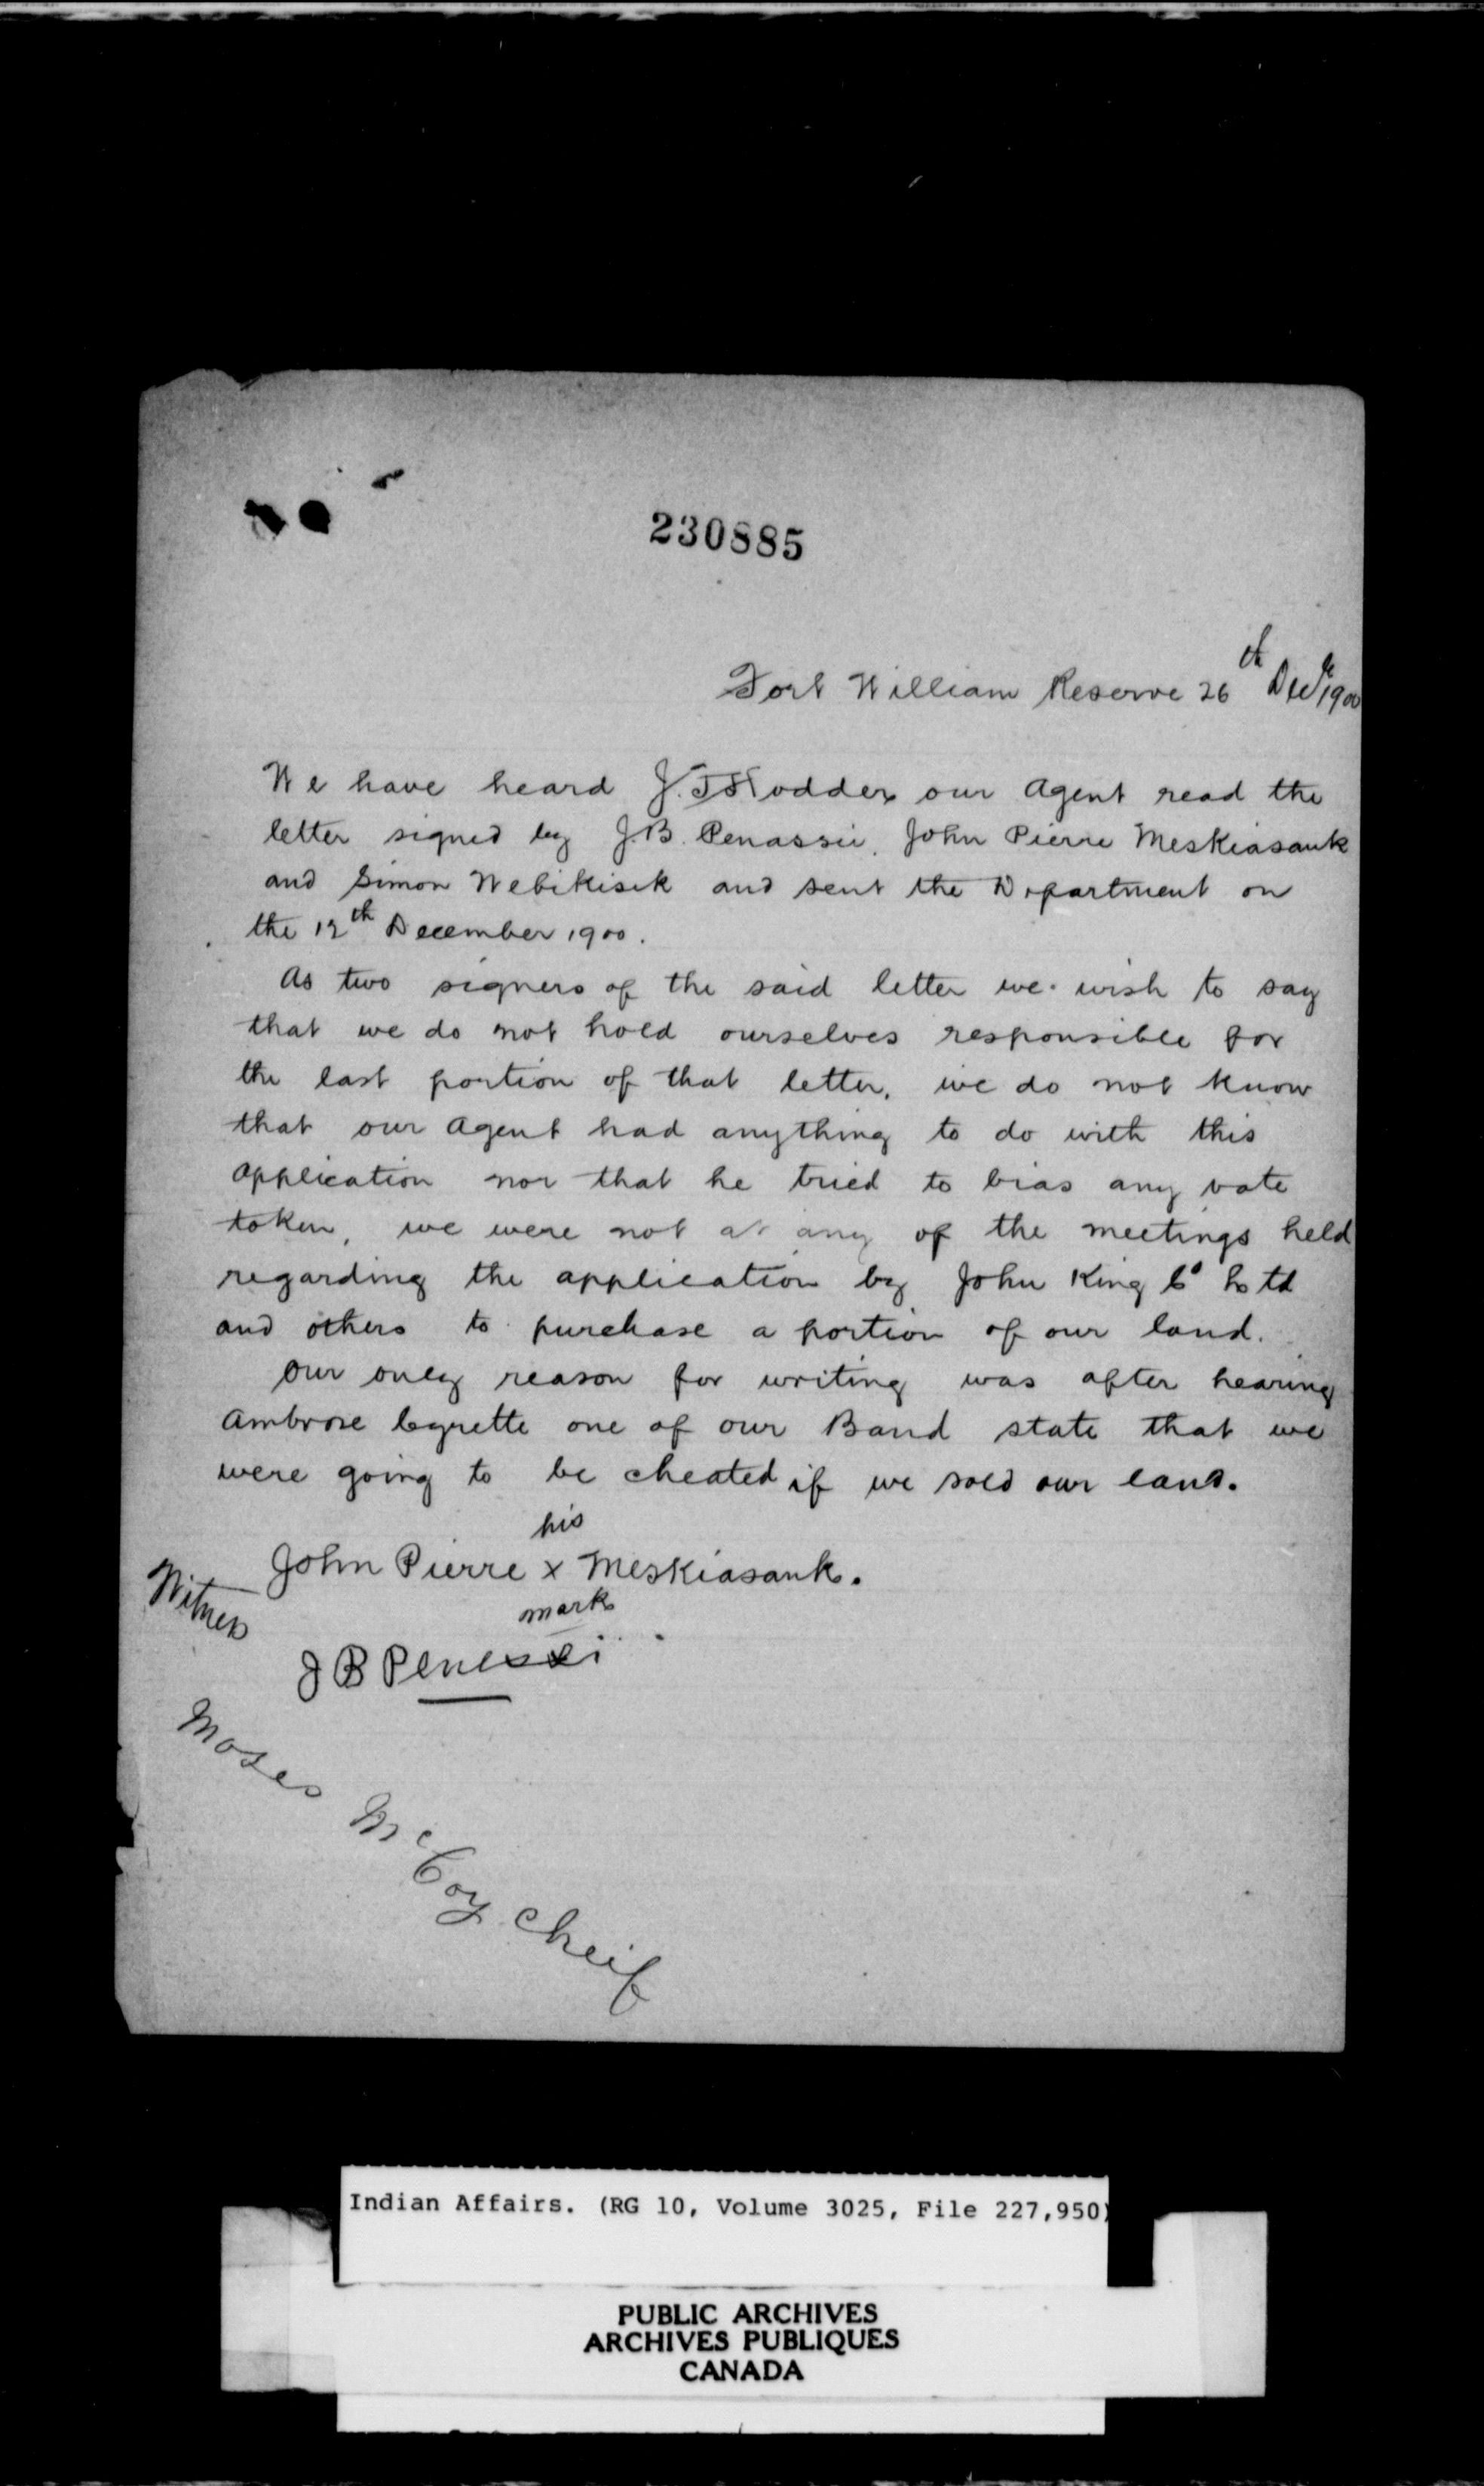 230885
Fort William Reserve 26th Decr 1900
We have heard J. T Hodder our Agent read the
letter signed by J.B. Penassie, John Pierre Meskiasank
and Simon Webikisik and sent the Department on
the 12th December 1900.
As two signers of the said letter we wish to say
that we do not hold ourselves responsible for
the last portion of that letter, we do not know
that our Agent had anything to do with this
application nor that he tried to bias any vote
token, we were not at any of the meetings held
regarding the application by John King Co Ltd
and others to purchase a portion of our land.
Our only reason for writing was after hearing
Ambrose Cyrette one of our Band state that we
were going to be cheated if we sold our land.
his
John Pierre x Meskiasank.
mark
Witness
J B Penessi
Moses McCoy Cheif
Indian Affairs. (RG 10, Volume 3025, File 227,950)
PUBLIC ARCHIVES
ARCHIVES PUBLIQUES
CANADA